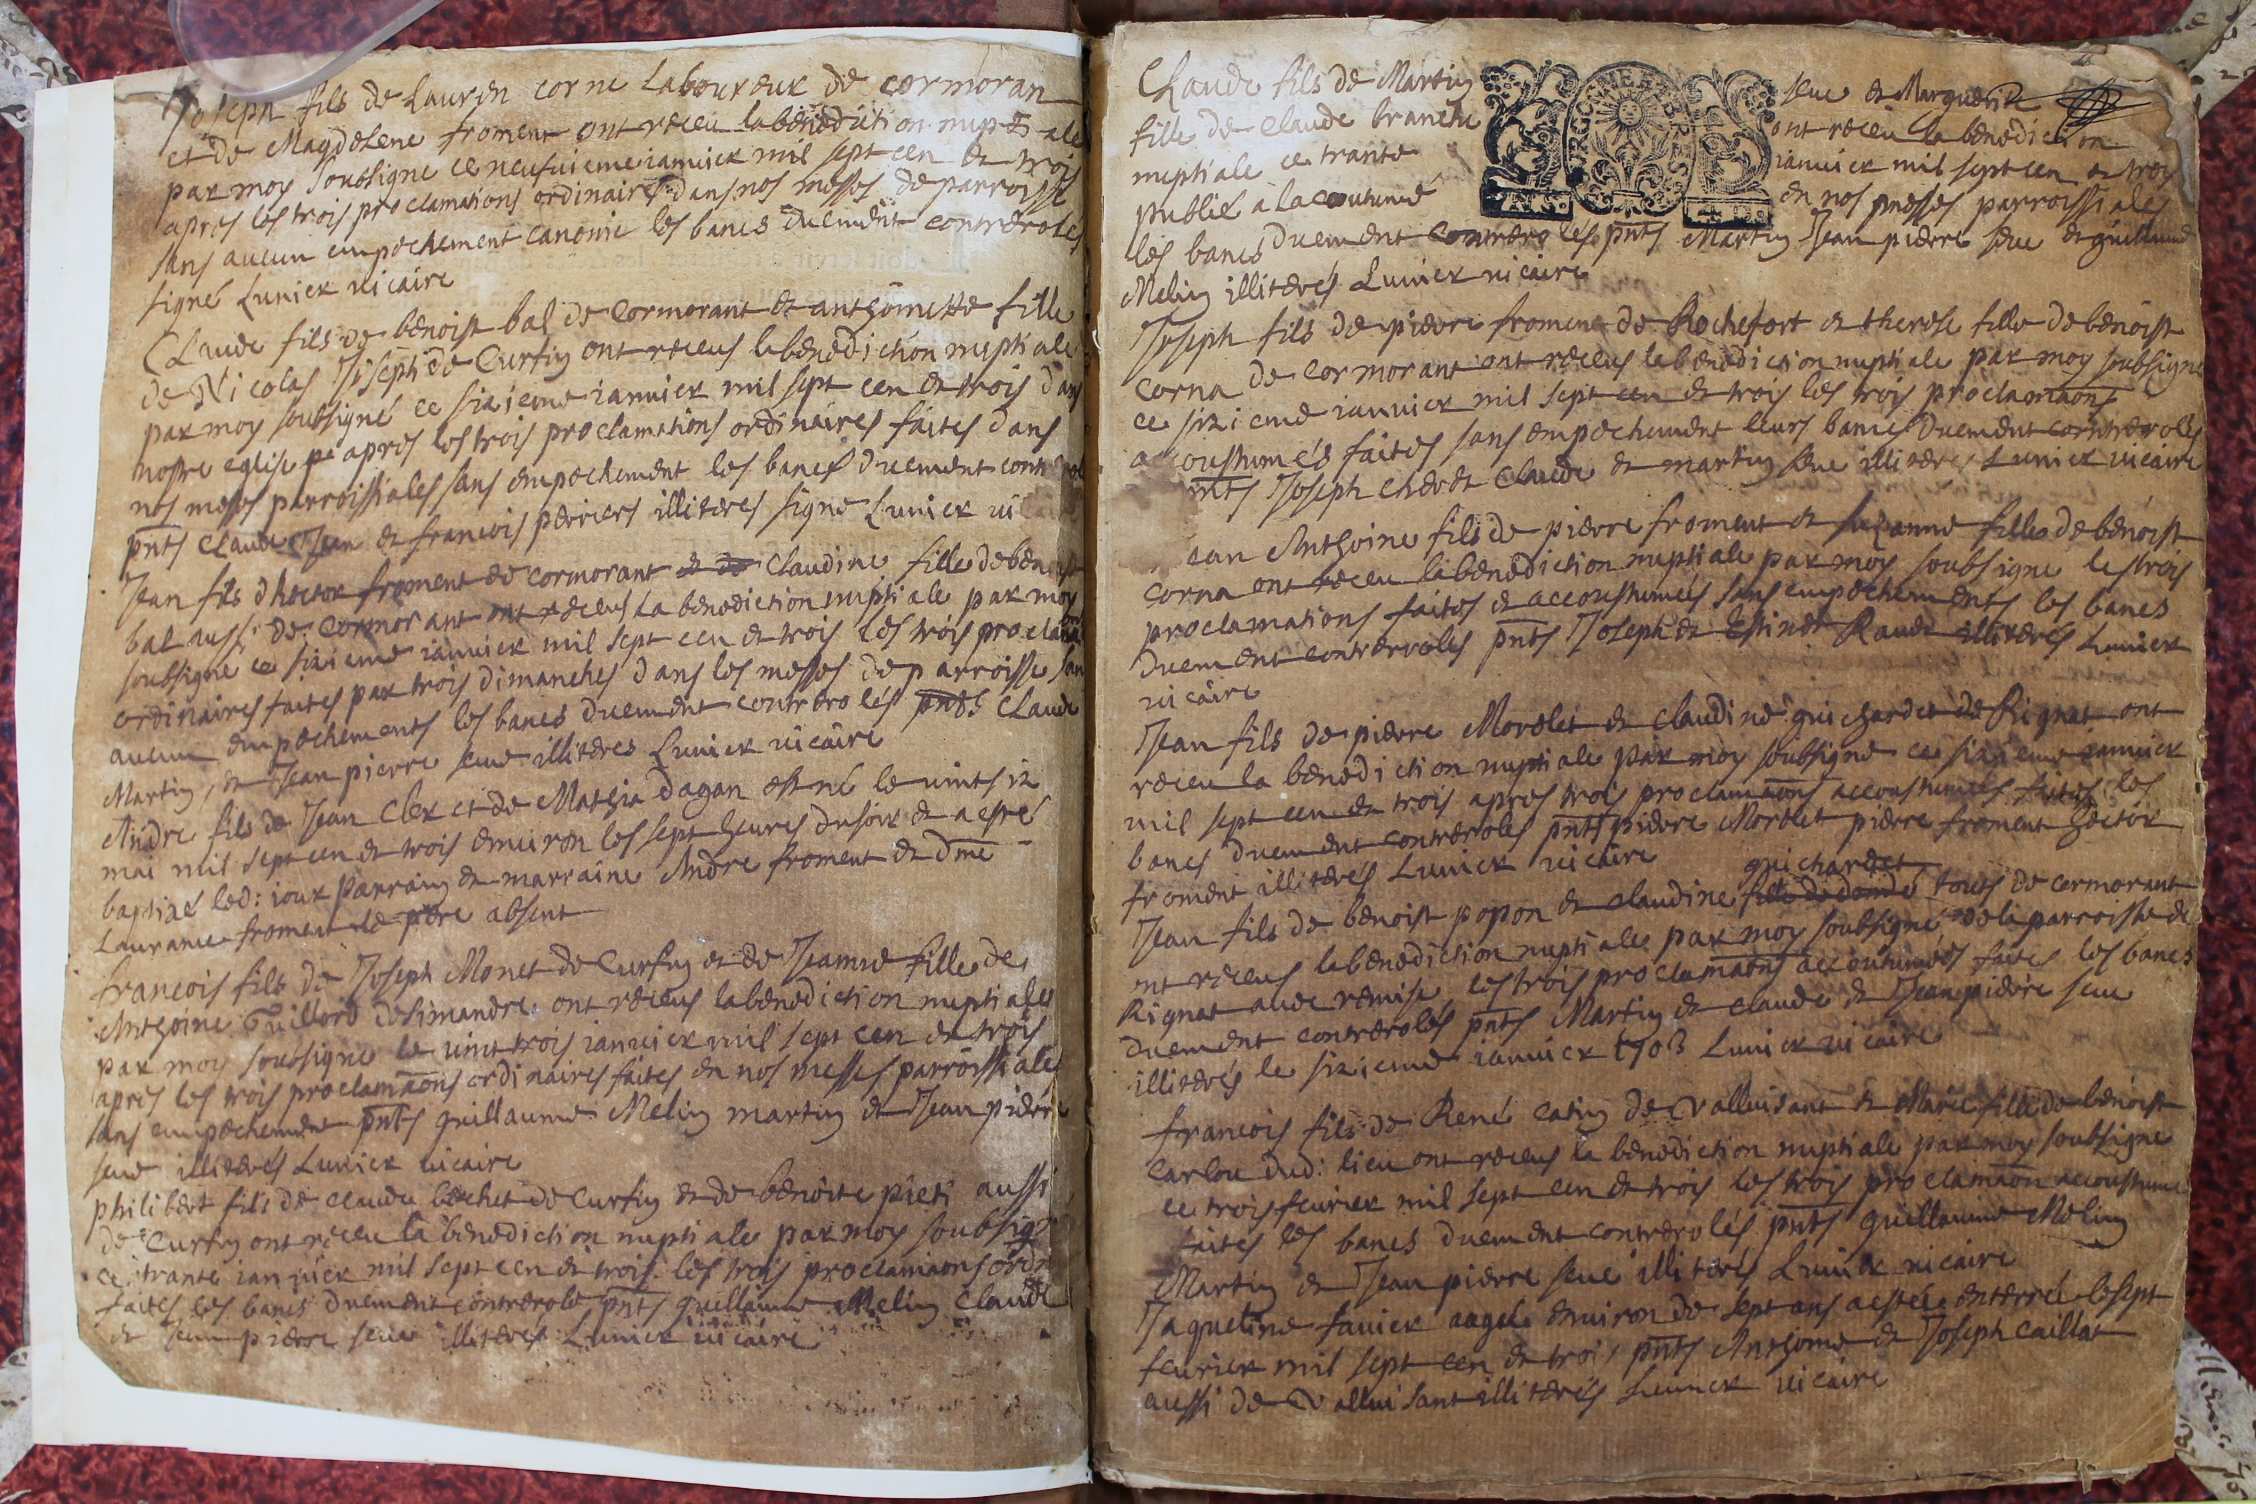 Joseph fils de Lauren corne Laboureur de cormoran
et de Magdelene froment ont receu la benediction nuptiale
par moy soubsigne ce neufuieme ianuier mil sept cen et trois
apres les trois proclamations ordinaires dans nos messes de parroisse
sans aucun empechement canonic les bancs duement contreroles
signé Lunier uicaire
Claude fils de benoist bal de cormorant et anthoinette fille
de Nicolas Joseph de Curfin ont receus la benediction nuptiale
par moy soubsigné ce sizieme ianuier mil sept cen et trois dans
nostre eglise pe apres les trois proclamations ordinaires faites dans
nos messes parroissiales sans empechement les bancs duement contrerol
pnts Claude Jean et francois perriers illiteres signe Lunier ui
Jean fils d hector froment de cormorant et de Claudine fille de benoist
bal aussi de cormorant ont receus la benediction nuptiale par moy
soubsigne ce sizieme ianuier mil sept cen et trois les trois proclama
ordinaires faites par trois dimanches dans les messes de parroisse san
aucun empechements les bancs duement contreroles pnts Claude
Martin, et Jean pierre seue illiteres Lunier uicaire
Andre fils de Jean Cler et de Mathia Dagan est né le uint six
mai mil sept cen et trois enuiron les sept heures du soir et a esté
baptisé led: iour parrain et marraine Andre froment et dme
Laurance froment le pere absent
francois fils de Joseph Monet de Curfin et de Jeanne fille de
Anthoine Guillord de simandre ont receus la benediction nuptiale
par moy soubsigne le uint trois ianuier mil sept cen et trois
apres les trois proclamaons ordinaires faites en nos messes parroissiales
sans empechement pnts guillaume Melin martin et Jean pierre
seue illiteres Lunier uicaire
philibert fils de claude bochet de Curfin et de benoite pieti aussi
de Curfin ont receu la benediction nuptiale par moy soubsig
ce trante ianuier mil sept cen et trois les trois proclamaons ordi
faites les bancs duement contrerole pnts guillaume Melin Claude
et Jean pierre seue illiteres Lunier uicaire
Claude fils de Martin seue et Marguerite
fille de claude branche ont receu la benediction
nuptiale ce trante ianuier mil sept cen et trois
publié a la coutume en nos messes parroissiales
les bancs duement contreroles pnts Martin Jean pierre seue et guillaume
Melin illiteres Lunier uicaire
Joseph fils de pierre froment de Rochefort et therese fille de benoist
corna de cormorant ont receus la benediction nuptiale par moy soubsigne
ce sizieme ianuier mil sept cen et trois les trois proclamaons
accoustumés faites sans empechement leurs bancs duement contreroles
pnts Joseph cheret Claude et martin seue illiteres Lunier uicaire
Jean Anthoine fils de pierre froment et suzanne fille de benoist
corna ont receu la benediction nuptiale par moy soubsigne les trois
proclamations faites et accoustumés sans empechements les bancs
duement contreroles pnts Joseph et Raude illiterés Lunier
uicaire
Jean fils de pierre Morelet et claudine guichardet de Rignat ont
receu la benediction nuptiale par moy soubsigne ce sizieme ianuier
mil sept cen et trois apres trois proclamaons accoustumés faites les
bancs duement contreroles pnts pierre Morelet pierre froment hector
froment illiterés Lunier uicaire
guichardet
Jean fils de benoist popon et claudine touts de cormorant
ont receus la benediction nuptiale par moy soubsigné de la parroisse de
Rignat auec remise les trois proclamaons accoutumées faites les bancs
duement contrerolés pnts Martin et claude et Jean pierre seue
illiterés le sizieme ianuier 1703 Lunier uicaire
francois fils de René catin de Valluisant et Marie fille de benoist
Carlou dud: lieu ont receus la benediction nuptiale par moy soubsigne
ce trois feurier mil sept cen et trois les trois proclamaon accoustume
faites les bancs duement contrerolés pnts guillaume Melin
Martin et Jean pierre seue illiterés Lunier uicaire
Jaqueline fauier aagé enuiron de sept ans a estée enterré le sept
feurier mil sept cen et trois pnts Anthoine et Joseph caillat
aussi de Valluisant illiterés Lunier uicaire